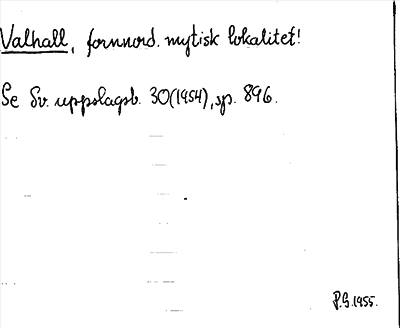 Valhall, fornnord. mytisk lokalitet!
Se Sv. uppslagsb. 30(1954), sp. 896.
P.G. 1955.